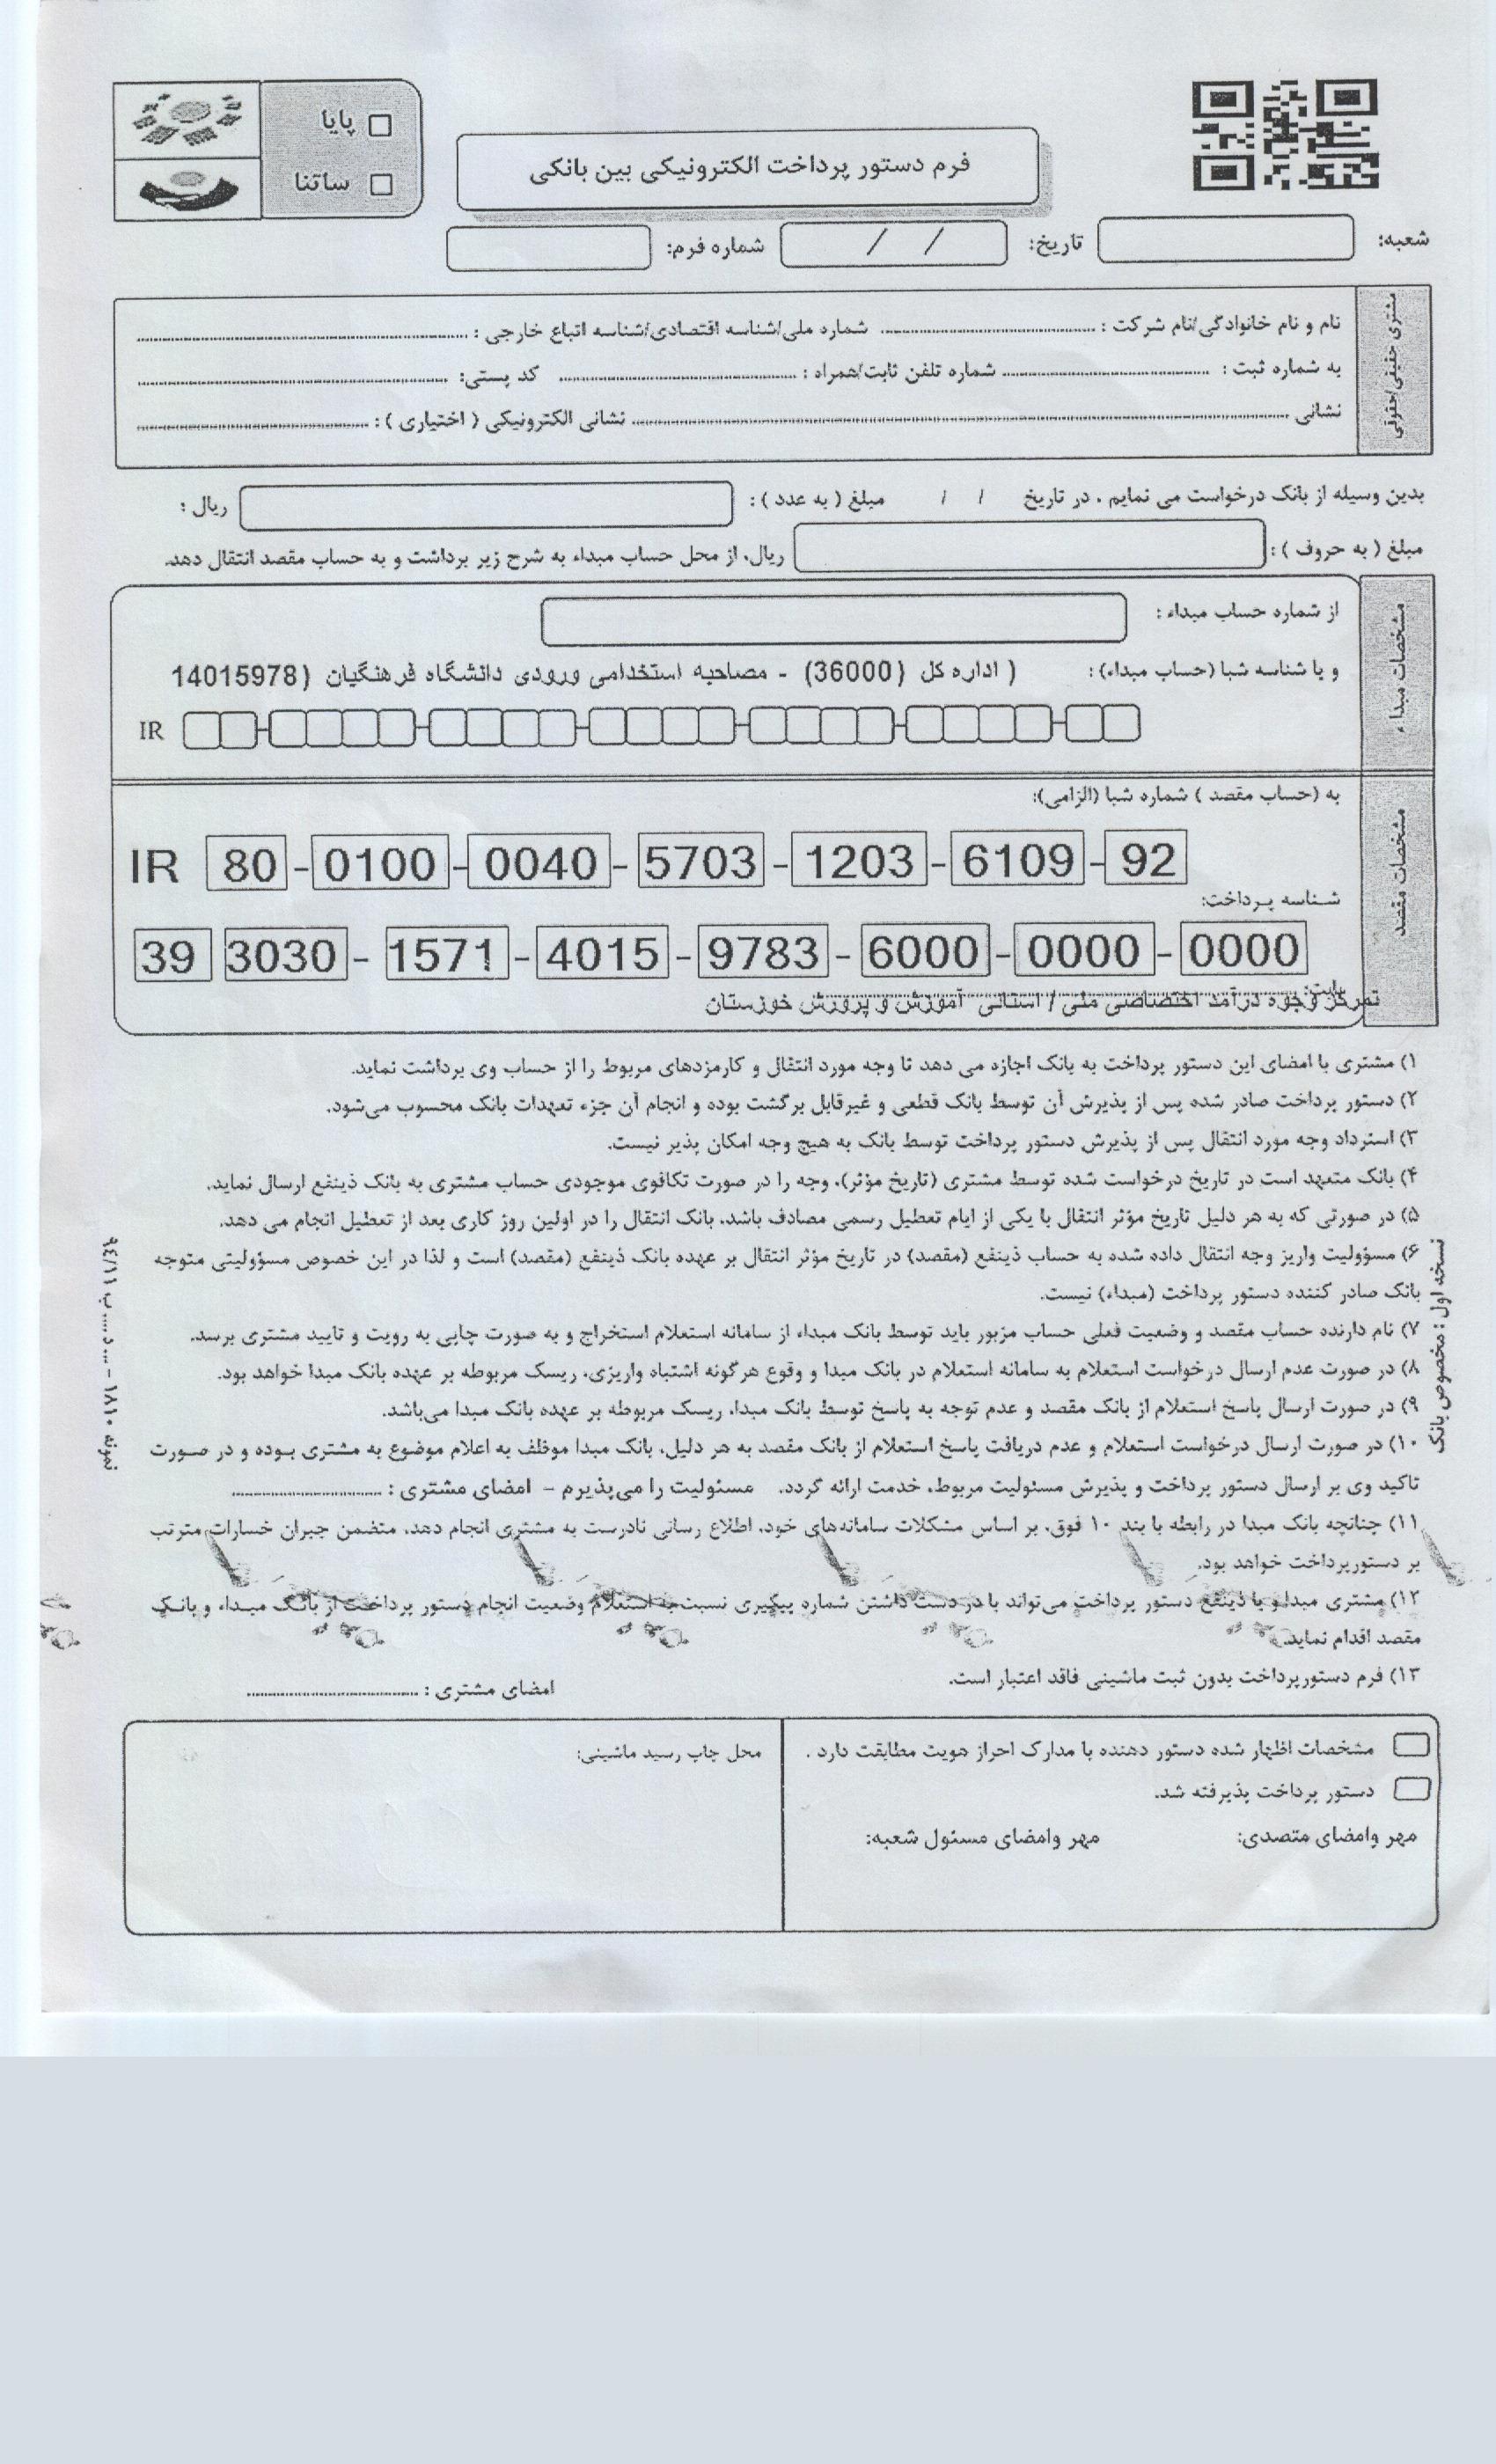 پایا
ساتنا
فرم دستور پرداخت الکترونیکی بین بانکی
شعبه: تاریخ: / / شماره فرم:
مشتری حقیقی/حقوقی
نام و نام خانوادگی/نام شرکت : شماره ملی/شناسه اقتصادی/شناسه اتباع خارجی :
به شماره ثبت : شماره تلفن ثابت/همراه : کد پستی:
نشانی نشانی الکترونیکی ( اختیاری ) :
بدین وسیله از بانک درخواست می نمایم . در تاریخ / / مبلغ ( به عدد ) : ریال :
مبلغ ( به حروف ) : ریال، از محل حساب مبداء به شرح زیر برداشت و به حساب مقصد انتقال دهد.
مشخصات مبداء
از شماره حساب مبداء :
و یا شناسه شبا (حساب مبداء) : ( اداره کل (36000) - مصاحبه استخدامی ورودی دانشگاه فرهنگیان (14015978
IR
مشخصات مقصد
به (حساب مقصد ) شماره شبا (الزامی):
IR 80-0100-0040-5703-1203-6109-92
شناسه پرداخت:
39 3030-1571-4015-9783-6000-0000-0000
بابت:
تمرکز وجوه درآمد اختصاصی ملی / استانی آموزش و پرورش خوزستان
۱) مشتری با امضای این دستور پرداخت به بانک اجازه می دهد تا وجه مورد انتقال و کارمزدهای مربوط را از حساب وی برداشت نماید.
۲) دستور پرداخت صادر شده پس از پذیرش آن توسط بانک قطعی و غیرقابل برگشت بوده و انجام آن جزء تعهدات بانک محسوب می‌شود.
۳) استرداد وجه مورد انتقال پس از پذیرش دستور پرداخت توسط بانک به هیچ وجه امکان پذیر نیست.
۴) بانک متعهد است در تاریخ درخواست شده توسط مشتری (تاریخ مؤثر)، وجه را در صورت تکافوی موجودی حساب مشتری به بانک ذینفع ارسال نماید.
۵) در صورتی که به هر دلیل تاریخ مؤثر انتقال با یکی از ایام تعطیل رسمی مصادف باشد، بانک انتقال را در اولین روز کاری بعد از تعطیل انجام می دهد.
۶) مسؤولیت واریز وجه انتقال داده شده به حساب ذینفع (مقصد) در تاریخ مؤثر انتقال بر عهده بانک ذینفع (مقصد) است و لذا در این خصوص مسؤولیتی متوجه
بانک صادر کننده دستور پرداخت (مبداء) نیست.
۷) نام دارنده حساب مقصد و وضعیت فعلی حساب مزبور باید توسط بانک مبداء از سامانه استعلام استخراج و به صورت چاپی به رویت و تایید مشتری برسد.
۸) در صورت عدم ارسال درخواست استعلام به سامانه استعلام در بانک مبدا و وقوع هرگونه اشتباه واریزی، ریسک مربوطه بر عهده بانک مبدا خواهد بود.
۹) در صورت ارسال پاسخ استعلام از بانک مقصد و عدم توجه به پاسخ توسط بانک مبدا، ریسک مربوطه بر عهده بانک مبدا می‌باشد.
۱۰) در صورت ارسال درخواست استعلام و عدم دریافت پاسخ استعلام از بانک مقصد به هر دلیل، بانک مبدا موظف به اعلام موضوع به مشتری بوده و در صورت
تاکید وی بر ارسال دستور پرداخت و پذیرش مسئولیت مربوط، خدمت ارائه گردد. مسئولیت را می‌پذیرم - امضای مشتری :
۱۱) چنانچه بانک مبدا در رابطه با بند ۱۰ فوق، بر اساس مشکلات سامانه‌های خود، اطلاع رسانی نادرست به مشتری انجام دهد، متضمن جبران خسارات مترتب
بر دستورپرداخت خواهد بود.
۱۲) مشتری مبدا و یا ذینفع دستور پرداخت می‌تواند با در دست داشتن شماره پیگیری نسبت به استعلام وضعیت انجام دستور پرداخت از بانک مبداء و بانک
مقصد اقدام نماید.
۱۳) فرم دستورپرداخت بدون ثبت ماشینی فاقد اعتبار است.
امضای مشتری :
نسخه اول : مخصوص بانک
نمونه ۱۸۱۰ - ... د..... ب ۹۴/۱۱
مشخصات اظهار شده دستور دهنده با مدارک احراز هویت مطابقت دارد .
دستور پرداخت پذیرفته شد.
مهر وامضای متصدی: مهر وامضای مسئول شعبه:
محل چاپ رسید ماشینی: